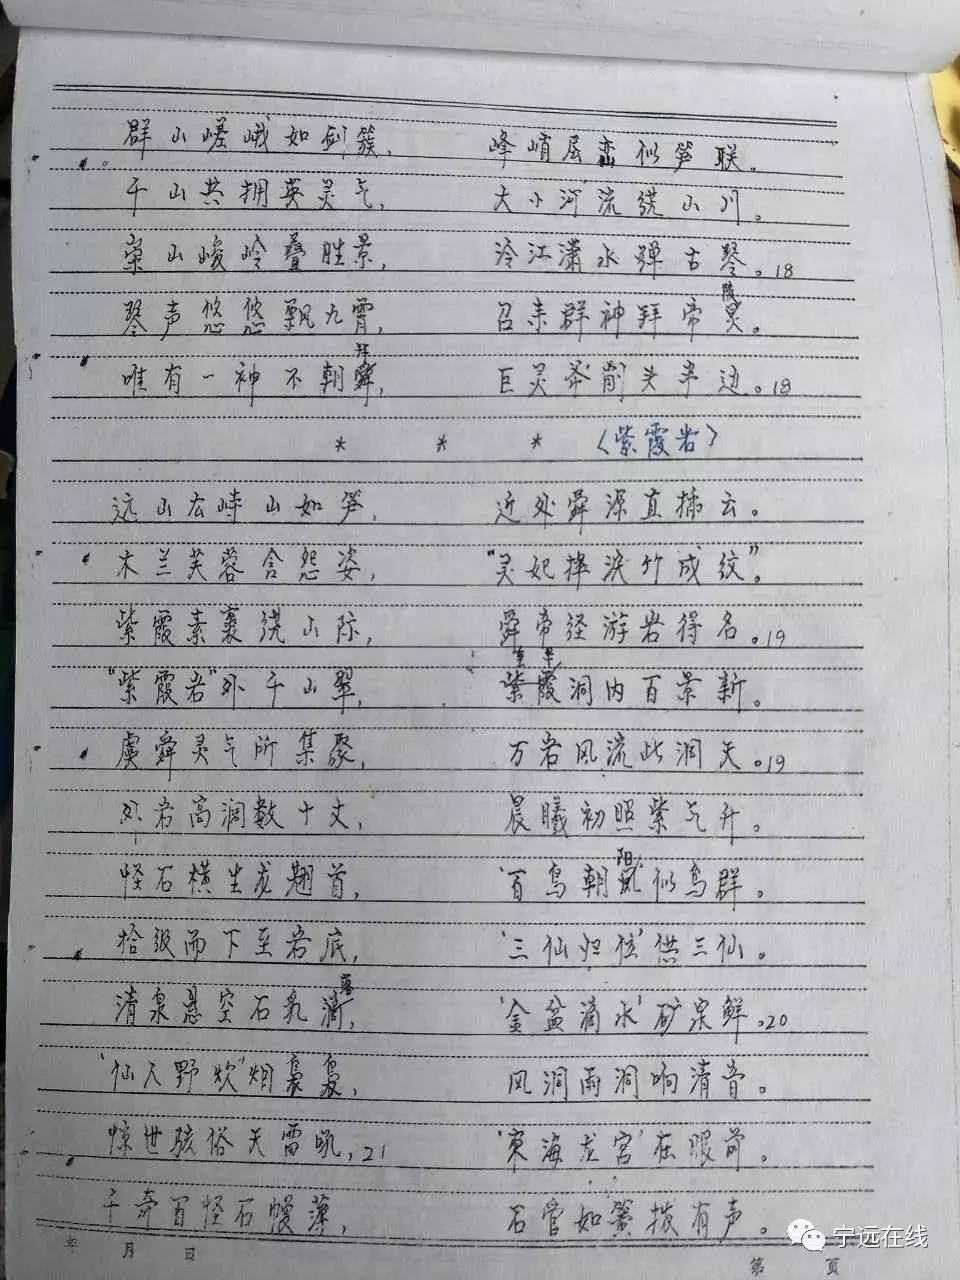 群山嵯峨如剑簇， 峰峭层峦似笋联。
千山共拥英灵气， 大小河流绕山川。
崇山峻岭叠胜景， 泠江潇水弹古琴。18
陵
琴声悠悠飘九霄， 召来群神拜帝灵。
拜
唯有一神不朝舜， 巨灵斧削头半边。18
* * * 〈紫霞岩〉
远山左峙山如笋， 近处舜源直插云。
木兰芙蓉含怨姿， “灵妃挥泪竹成纹”。
紫霞素裹绕山际， 舜帝经游岩得名。19
“紫霞岩”外千山翠， 紫霞洞内百景新。
虞舜灵气所集聚， 万岩风流此洞天。19
外岩高润数十丈， 晨曦初照紫气升。
阳
怪石横生龙翘首， ‘百鸟朝凤’似鸟群。
拾级而下至岩底， ‘三仙归位’供三仙。
清泉悬空石乳滴， ‘金盆滴水’矿泉鲜。20
‘仙人野炊’烟袅袅， 风洞雨洞响清音。
惊世骇俗天雷吼，21 ‘东海龙宫’在眼前。
千奇百怪石幔薄， 石管如簧拨有声。
年 月 日 第 页
宁远在线